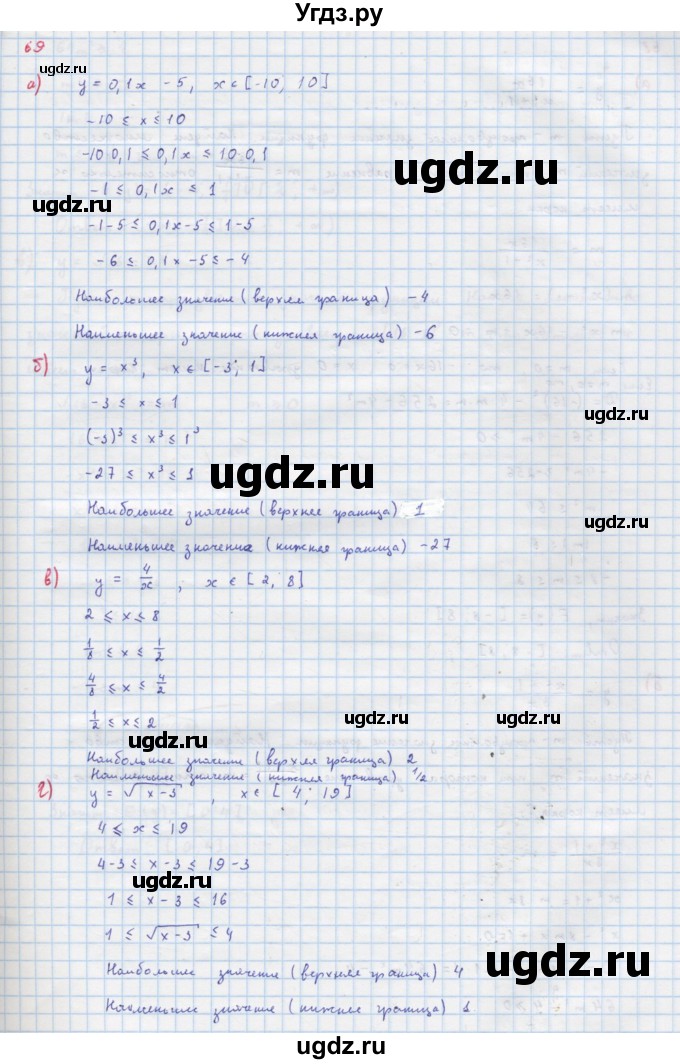 Угдз.ру
69
а) y = 0,1x - 5, x ∈ [-10; 10]
-10 ≤ x ≤ 10
-10·0,1 ≤ 0,1x ≤ 10·0,1
ugdz.ru
-1 ≤ 0,1x ≤ 1
ugdz.ru
-1-5 ≤ 0,1x-5 ≤ 1-5
ugdz.ru
-6 ≤ 0,1x-5 ≤ -4
Наибольшее значение (верхняя граница) -4
Наименьшее значение (нижняя граница) -6
б) y = x³, x ∈ [-3; 1]
-3 ≤ x ≤ 1
ugdz.ru
(-3)³ ≤ x³ ≤ 1³
-27 ≤ x³ ≤ 1
ugdz.ru
Наибольшее значение (верхнее граница) 1
Наименьшее значение (нижняя граница) -27
в) y = 4/x, x ∈ [2; 8]
2 ≤ x ≤ 8
1/8 ≤ x ≤ 1/2
4/8 ≤ x ≤ 4/2
ugdz.ru
1/2 ≤ x ≤ 2
ugdz.ru
ugdz.ru
Наибольшее значение (верхняя граница) 2
Наименьшее значение (нижняя граница) 1/2
г) y = √x-3, x ∈ [4; 19]
4 ≤ x ≤ 19
4-3 ≤ x-3 ≤ 19-3
ugdz.ru
1 ≤ x-3 ≤ 16
1 ≤ √x-3 ≤ 4
ugdz.ru
Наибольшее значение (верхняя граница) 4
Наименьшее значение (нижняя граница) 1
ugdz.ru